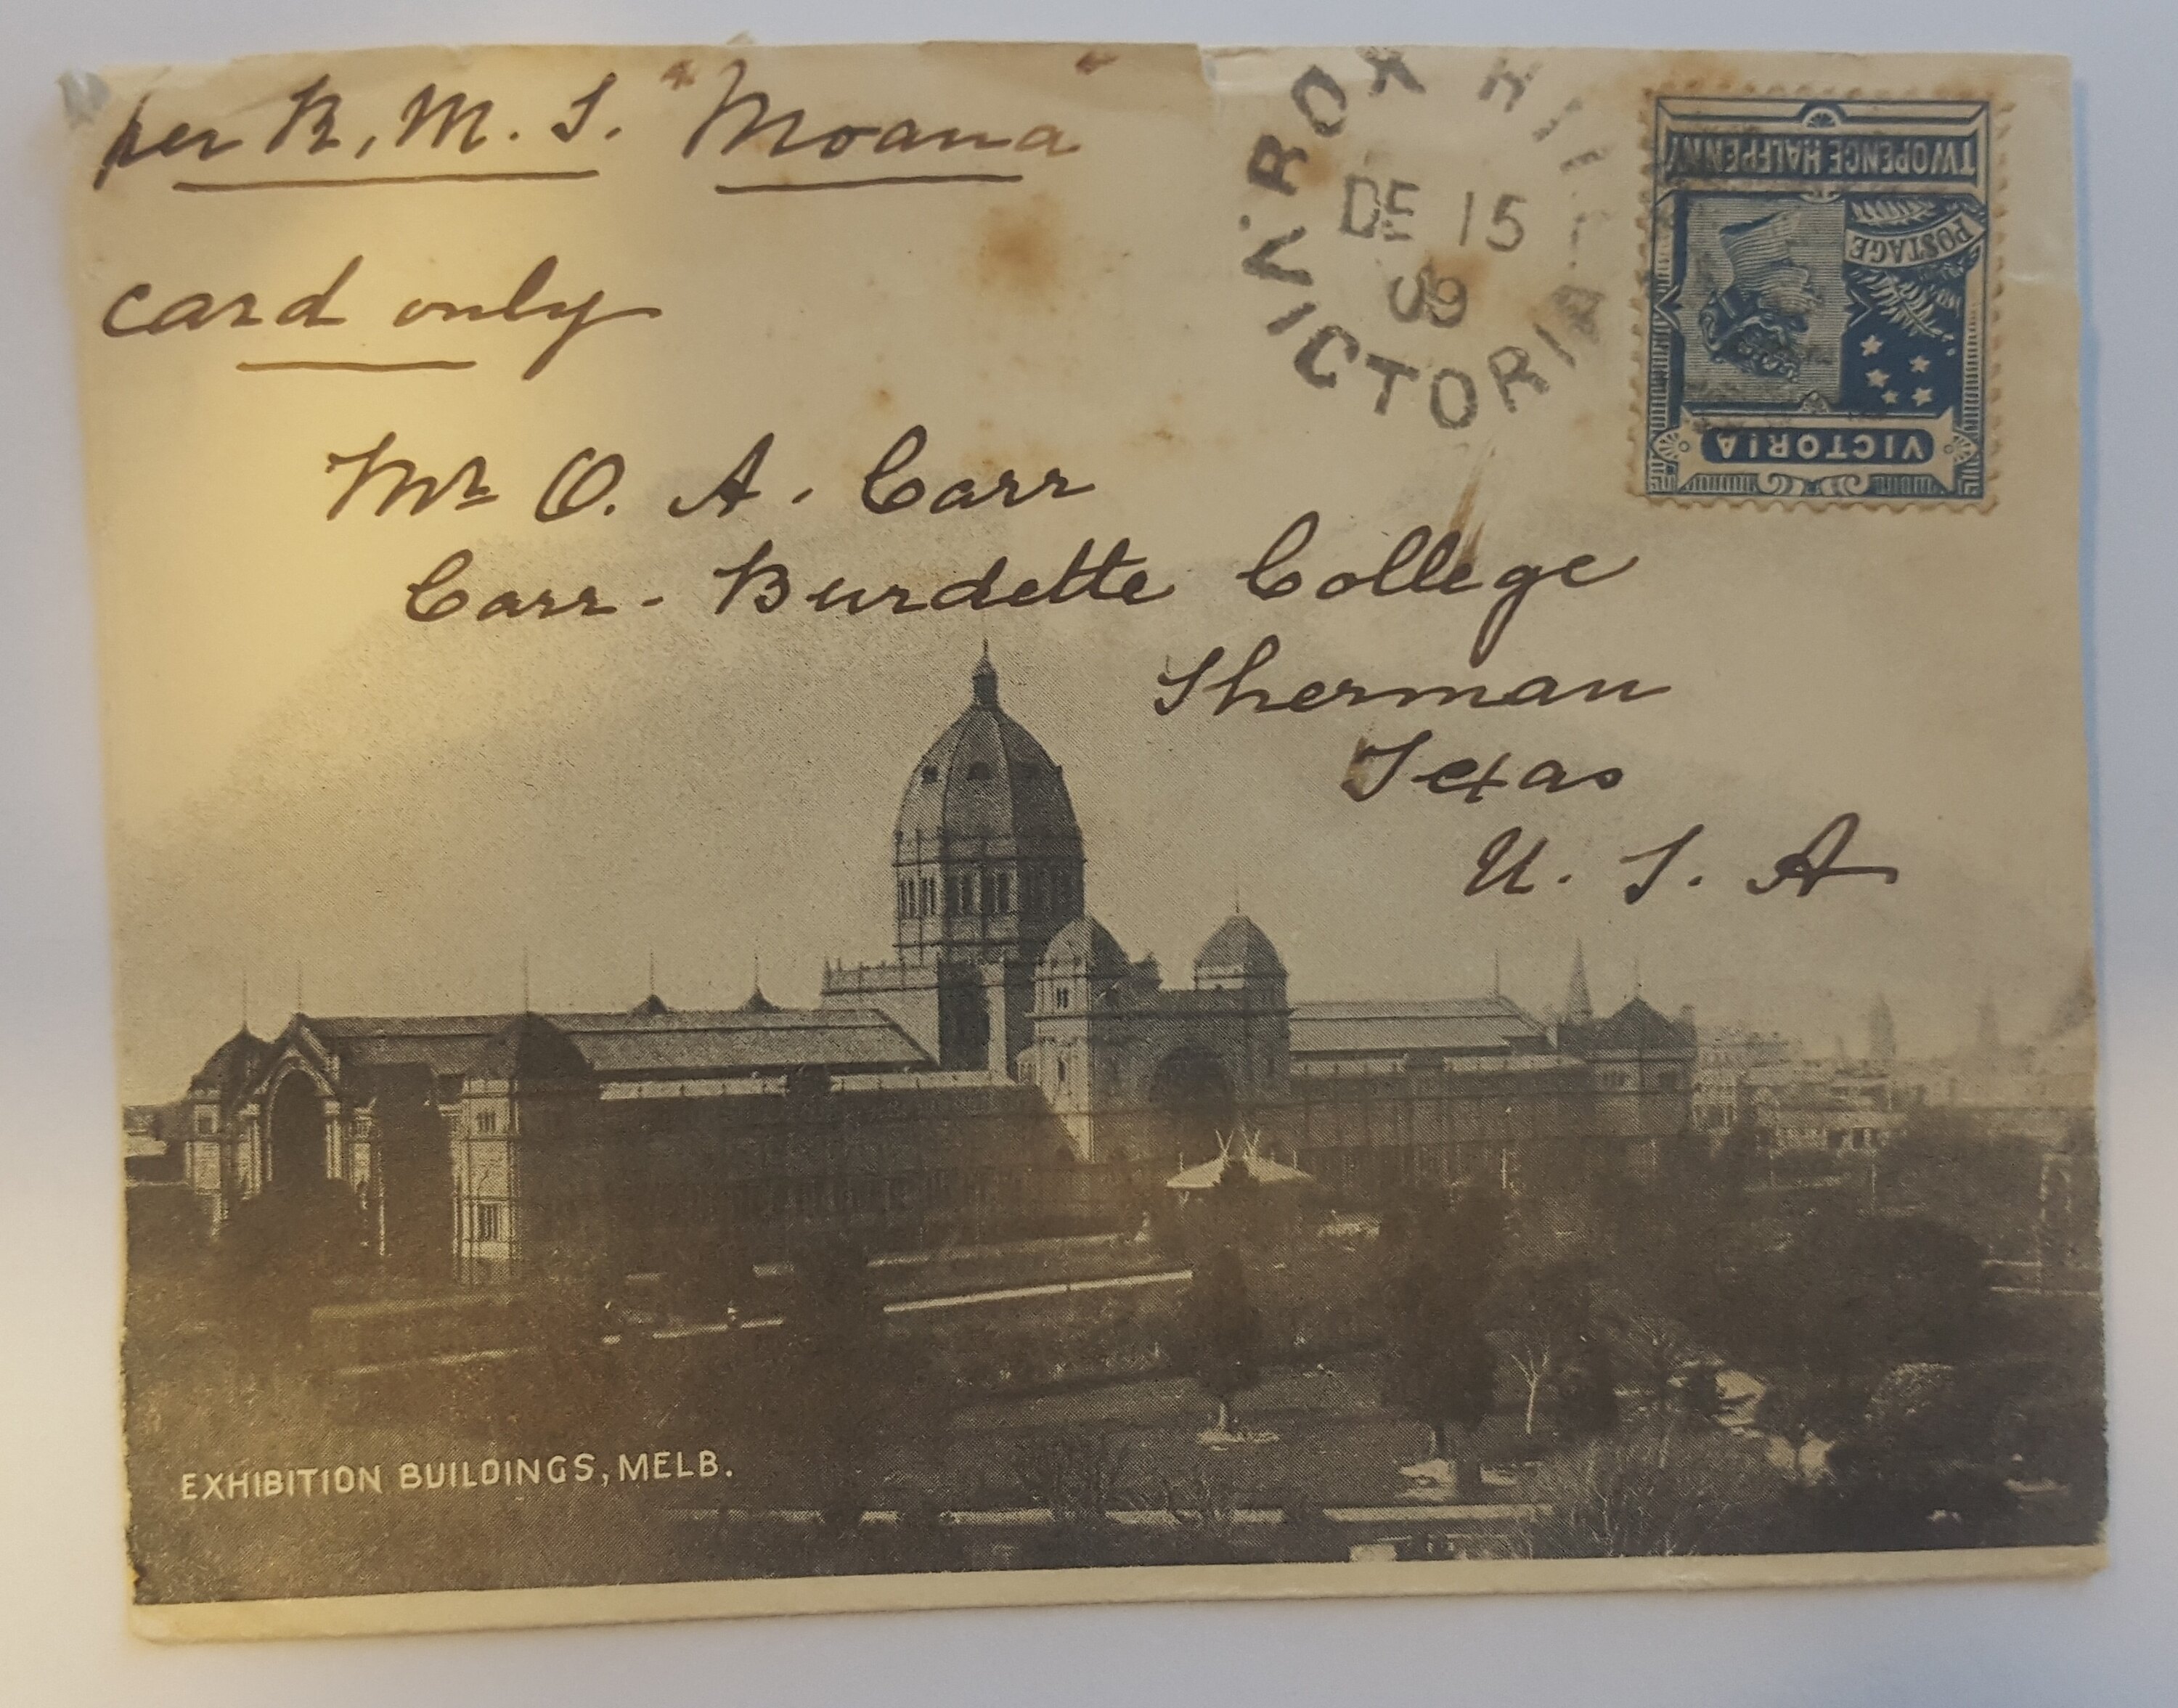 per R. M. S. "Moana"
card only
BOX HILL
DE 15
VICTORIA
TWOPENCE HALFPENNY
POSTAGE
VICTORIA
Mr O. A. Carr
Carr-Burdette College
Sherman
Texas
U. S. A
EXHIBITION BUILDINGS, MELB.